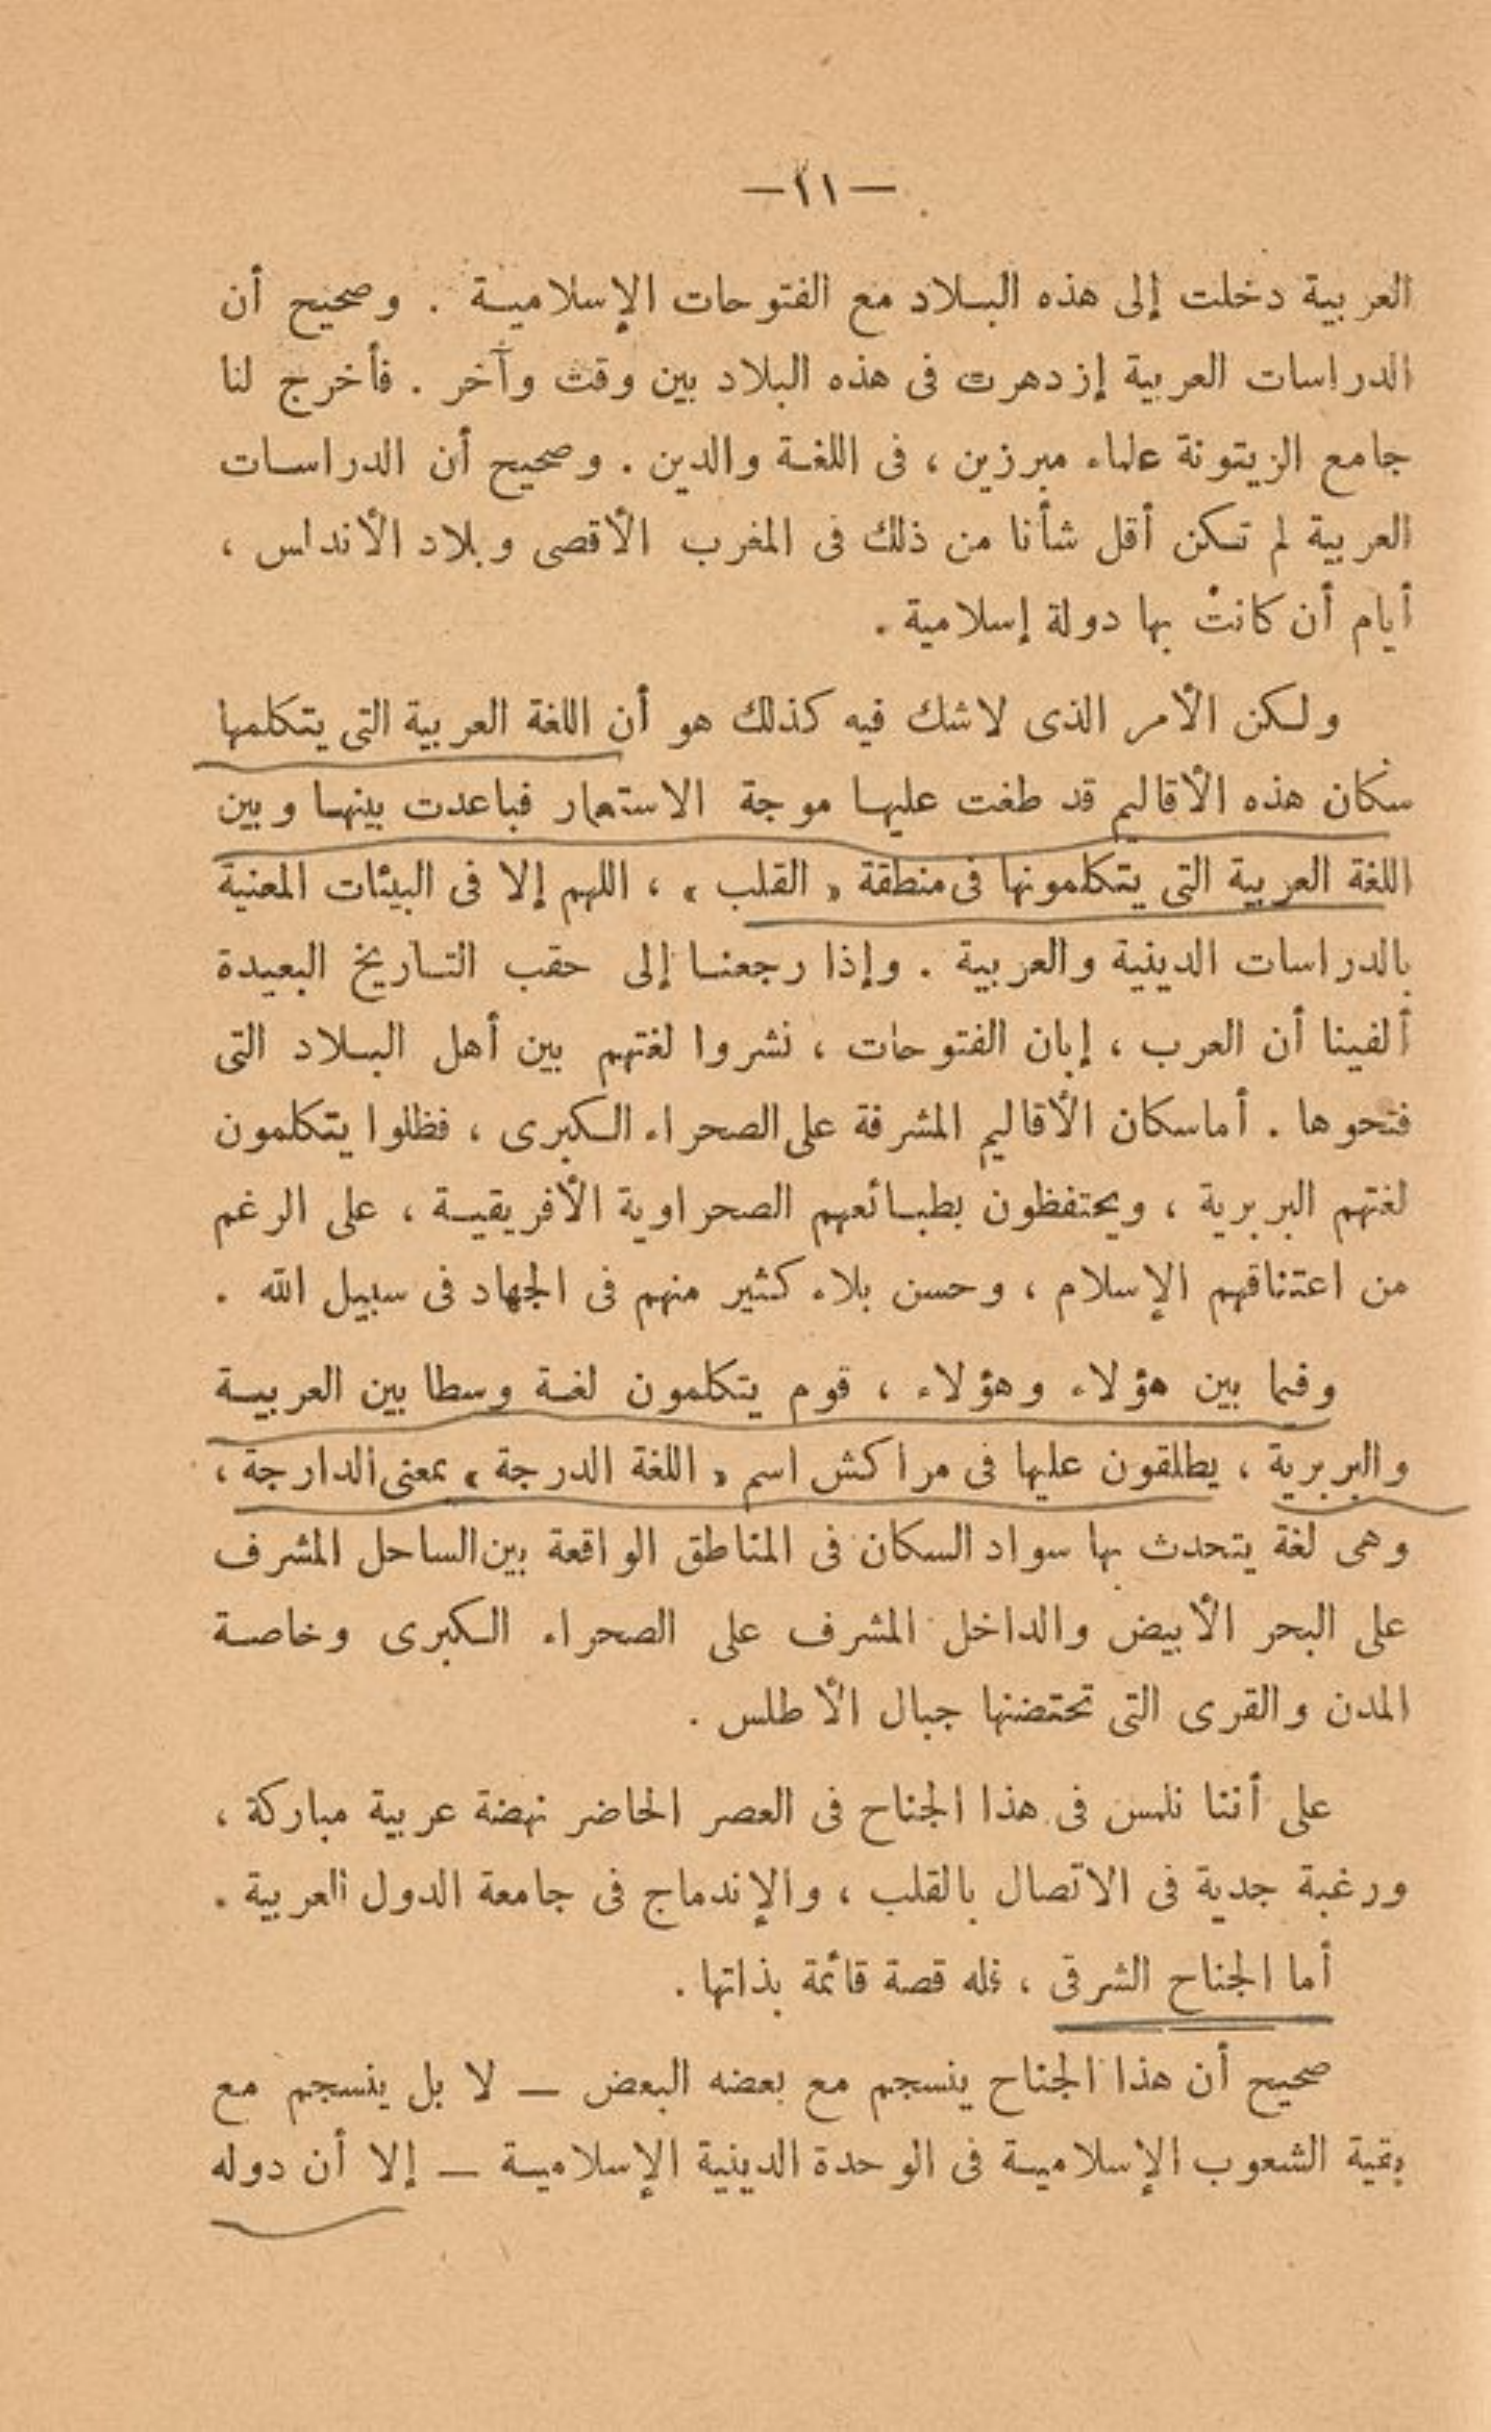 — ١١ —
العربية دخلت إلى هذه البلاد مع الفتوحات الإسلامية . وصحيح أن
الدراسات العربية إزدهرت فى هذه البلاد بين وقت وآخر . فأخرج لنا
جامع الزيتونة علماء مبرزين ، فى اللغة والدين . وصحيح أن الدراسات
العربية لم تكن أقل شأنا من ذلك فى المغرب الأقصى وبلاد الأندلس ،
أيام أن كانت بها دولة إسلامية .
ولكن الأمر الذى لاشك فيه كذلك هو أن اللغة العربية التى يتكلمها
سكان هذه الأقاليم قد طغت عليها موجة الاستعمار فباعدت بينها وبين
اللغة العربية التى يتكلمونها فى منطقة « القلب » ، اللهم إلا فى البيئات المعنية
بالدراسات الدينية والعربية . وإذا رجعنا إلى حقب التاريخ البعيدة
ألفينا أن العرب ، إبان الفتوحات ، نشروا لغتهم بين أهل البلاد التى
فتحوها . أما سكان الأقاليم المشرفة على الصحراء الكبرى ، فظلوا يتكلمون
لغتهم البربرية ، ويحتفظون بطبائعهم الصحراوية الأفريقية ، على الرغم
من اعتناقهم الإسلام ، وحسن بلاء كثير منهم فى الجهاد فى سبيل الله .
وفيما بين هؤلاء وهؤلاء ، قوم يتكلمون لغة وسطا بين العربية
والبربرية ، يطلقون عليها فى مراكش اسم « اللغة الدرجة » بمعنى الدارجة ،
وهى لغة يتحدث بها سواد السكان فى المناطق الواقعة بين الساحل المشرف
على البحر الأبيض والداخل المشرف على الصحراء الكبرى وخاصة
المدن والقرى التى تحتضنها جبال الأطلس .
على أننا نلمس فى هذا الجناح فى العصر الحاضر نهضة عربية مباركة ،
ورغبة جدية فى الاتصال بالقلب ، والإندماج فى جامعة الدول العربية .
أما الجناح الشرقى ، فله قصة قائمة بذاتها .
صحيح أن هذا الجناح ينسجم مع بعضه البعض — لا بل ينسجم مع
بقية الشعوب الإسلامية فى الوحدة الدينية الإسلامية — إلا أن دوله